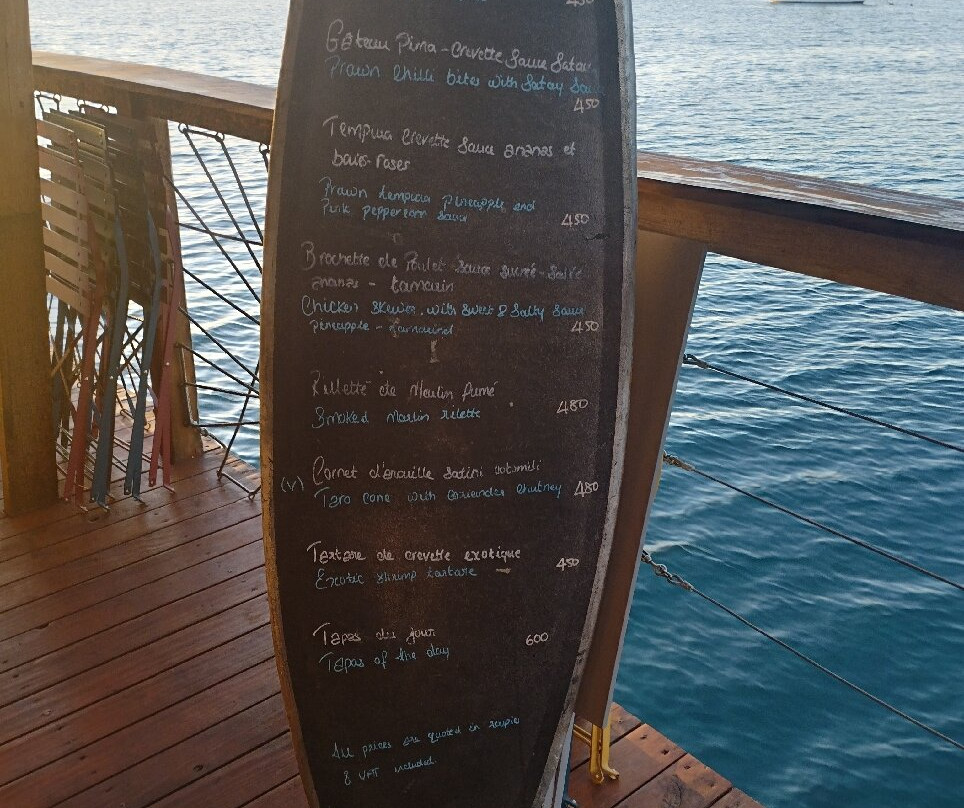 450
Gâteau Pima - Crevette Sauce Satay
Prawn Chilli bites with Satay
450
Tempura Crevette Sauce ananas et
baies-roses
Prawn tempura Pineapple and
Pink peppercorn sauce
450
Brochette de Poulet Sauce sucré-salée
ananas - tamarin
Chicken Skewer with Sweet & Salty Sauce
pineapple - tamarind
450
Rillette de Moulin fumé
Smoked Marlin rilette
480
Cornet d'arouille Satini cotomili
(V) Taro cone with coriander Chutney 480
Tartare de crevette exotique
Exotic shrimp tartare
450
Tapas du jour 600
Tapas of the day
All prices are quoted in rupie
& VAT included.